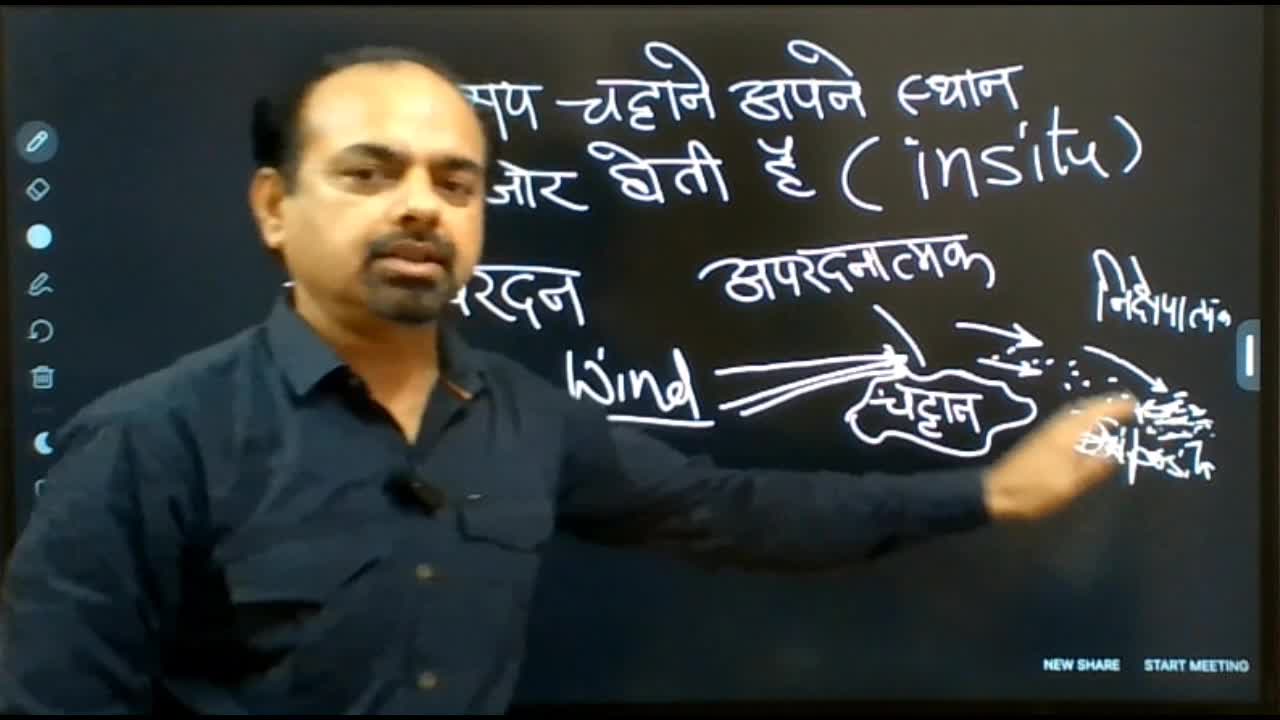 चट्टाने अपने स्थान
होती है (insitu)
अपरदनात्मक
निक्षेपात्मक
Wind
चट्टान
NEW SHARE START MEETING